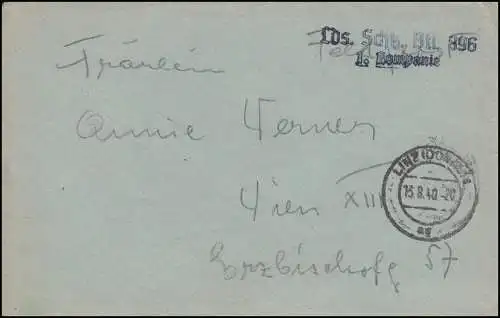 Lds. Schtz. Btl. 896
1. Kompanie
Feldpost
Fräulein
Annie Werner
Wien XIII
Erzbischofg 57
LINZ (DONAU)
15.8.40.-20